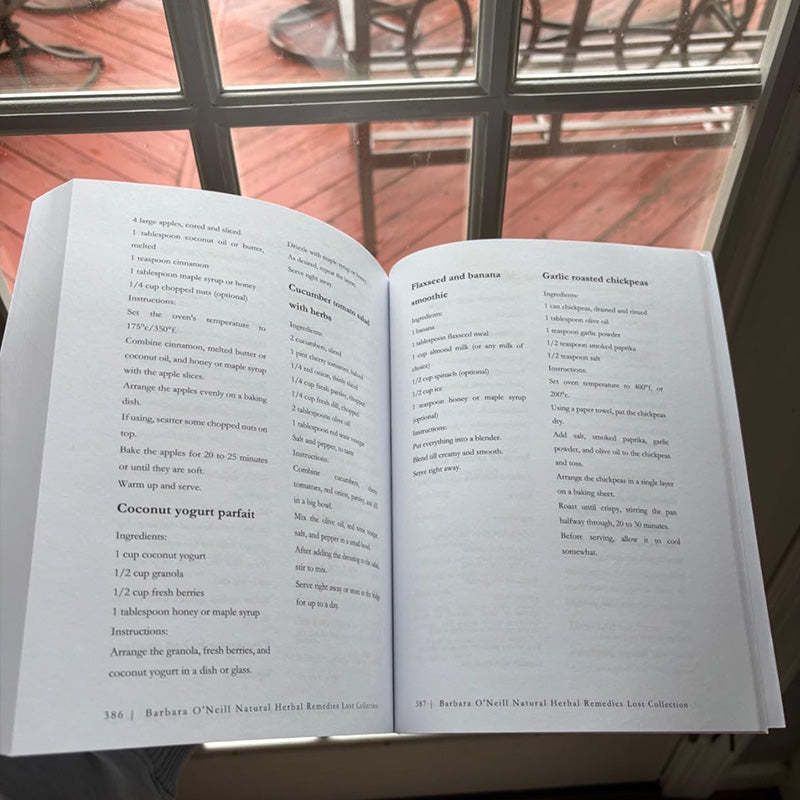 4 large apples, cored and sliced.
1 tablespoon coconut oil or butter,
melted
1 teaspoon cinnamon
1 tablespoon maple syrup or honey
1/4 cup chopped nuts (optional)
Instructions:
Set the oven's temperature to
175°c/350°f.
Combine cinnamon, melted butter or
coconut oil, and honey or maple syrup
with the apple slices.
Arrange the apples evenly on a baking
dish.
If using, scatter some chopped nuts on
top.
Bake the apples for 20 to 25 minutes
or until they are soft.
Warm up and serve.
Coconut yogurt parfait
Ingredients:
1 cup coconut yogurt
1/2 cup granola
1/2 cup fresh berries
1 tablespoon honey or maple syrup
Instructions:
Arrange the granola, fresh berries, and
coconut yogurt in a dish or glass.
Drizzle with maple syrup or honey.
As desired, repeat the layers.
Serve right away.
Cucumber tomato salad
with herbs
Ingredients:
2 cucumbers, sliced
1 pint cherry tomatoes, halved
1/4 red onion, thinly sliced
1/4 cup fresh parsley, chopped
1/4 cup fresh dill, chopped
2 tablespoons olive oil
1 tablespoon red wine vinegar
Salt and pepper, to taste
Instructions:
Combine cucumbers, cherry
tomatoes, red onion, parsley, and dill
in a big bowl.
Mix the olive oil, red wine vinegar,
salt, and pepper in a small bowl.
After adding the dressing to the salad,
stir to mix.
Serve right away or store in the fridge
for up to a day.
386 | Barbara O'Neill Natural Herbal Remedies Lost Collection
Flaxseed and banana
smoothie
Ingredients:
1 banana
1 tablespoon flaxseed meal
1 cup almond milk (or any milk of
choice)
1/2 cup spinach (optional)
1/2 cup ice
1 teaspoon honey or maple syrup
(optional)
Instructions:
Put everything into a blender.
Blend till creamy and smooth.
Serve right away.
Garlic roasted chickpeas
Ingredients:
1 can chickpeas, drained and rinsed
1 tablespoon olive oil
1 teaspoon garlic powder
1/2 teaspoon smoked paprika
1/2 teaspoon salt
Instructions:
Set oven temperature to 400°f, or
200°c.
Using a paper towel, pat the chickpeas
dry.
Add salt, smoked paprika, garlic
powder, and olive oil to the chickpeas
and toss.
Arrange the chickpeas in a single layer
on a baking sheet.
Roast until crispy, stirring the pan
halfway through, 20 to 30 minutes.
Before serving, allow it to cool
somewhat.
387 | Barbara O'Neill Natural Herbal Remedies Lost Collection